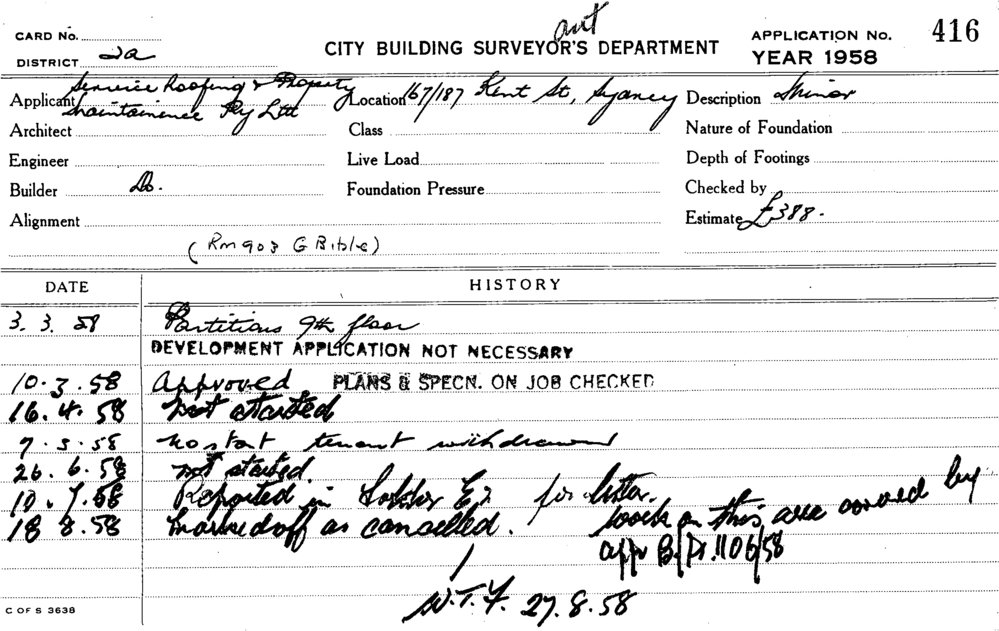 ant
CARD No.
CITY BUILDING SURVEYOR'S DEPARTMENT
APPLICATION No. 416
DISTRICT 2a
YEAR 1958
Applicant Service Roofing & Property
Maintainence Pty Ltd
Location 167/187 Kent St, Sydney
Description Minor
Architect
Class
Nature of Foundation
Engineer
Live Load
Depth of Footings
Builder Do.
Foundation Pressure
Checked by
Alignment
Estimate £388.
(Rm 903 G Bible)
DATE HISTORY
3. 3. 58 Partitions 9th floor
DEVELOPMENT APPLICATION NOT NECESSARY
10. 3. 58 Approved PLANS & SPECN. ON JOB CHECKED
16. 4. 58 not started
7. 5. 58 no start tenant withdrawn
26. 6. 58 not started.
10. 7. 58 Reported in for letter.
18 8. 58 marked off as cancelled.
work on this area covered by
appr B/ 1106/58
W.T.F. 27. 8. 58
C OF S 3638